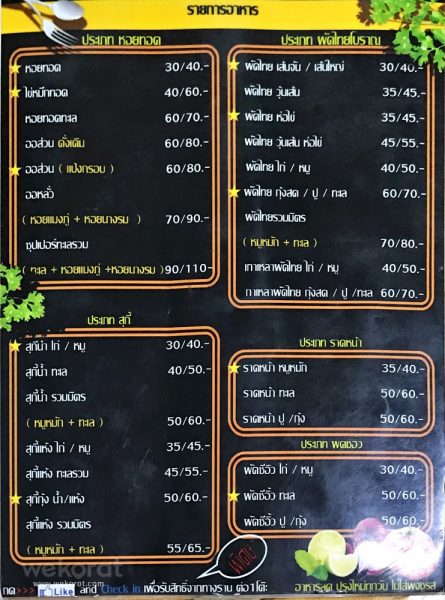 รายการอาหาร
ประเภท หอยทอด
หอยทอด 30/40.-
ไข่หมึกทอด 40/60.-
หอยทอดทะเล 60/70.-
ออส่วน ดั้งเดิม 60/80.-
ออส่วน ( แป้งกรอบ ) 60/80.-
ออหลั่ว
( หอยแมงภู่ + หอยนางรม ) 70/90.-
ซุปเปอร์ทะลรวม
( ทะล + หอยแมงภู่ +หอยนางรม) 90/110-
ประเภท สุกี้
สุกี้น้ำ ไก่ / หมู 30/40.-
สุกี้น้ำ ทะล 40/50.-
สุกี้น้ำ รวมมิตร
( หมูหมัก + ทะล ) 50/60.-
สุกี้แห้ง ไก่ / หมู 35/45.-
สุกี้แห้ง ทะลรวม 45/55.-
สุกี้กุ้ง น้ำ/แห้ง 50/60.-
สุกี้แห้ง รวมมิตร
( หมูหมัก + ทะล ) 55/65.-
ประเภท ผัดไทยโบราณ
ผัดไทย เส้นจัน / เส้นใหญ่ 30/40.-
ผัดไทย วุ้นเส้น 35/45.-
ผัดไทย ห่อไข่ 35/45.-
ผัดไทย วุ้นเส้น ห่อไข่ 45/55.-
ผัดไทย ไก่ / หมู 40/50.-
ผัดไทย กุ้งสด / ปู / ทะล 60/70.-
ผัดไทยรวมมิตร
(หมูหมัก + ทะล ) 70/80.-
เกาเหลาผัดไทย ไก่ / หมู 40/50.-
กาเหลาผัดไทย กุ้งสด / ปู /ทะล 60/70.-
ประเภท ราดหน้า
ราดหน้า หมูหมัก 35/40.-
ราดหน้า ทะล 50/60.-
ราดหน้า ปู /กุ้ง 50/60.-
ประเภท ผัดซีอิ๊ว
ผัดซีอิ๊ว ไก่ / หมู 30/40.-
ผัดซีอิ๊ว ทะล 50/60.-
ผัดซีอิ๊ว ปู /กุ้ง 50/60.-
wekorat
www.wekorat.com
กด>>> Like and Check in เพื่อรับสิทธิ์จากทางร้าน ต่อ 1 โต๊ะ
อาหารสด ปรุงใหม่ทุกวัน ไม่ใส่ผงชูรส